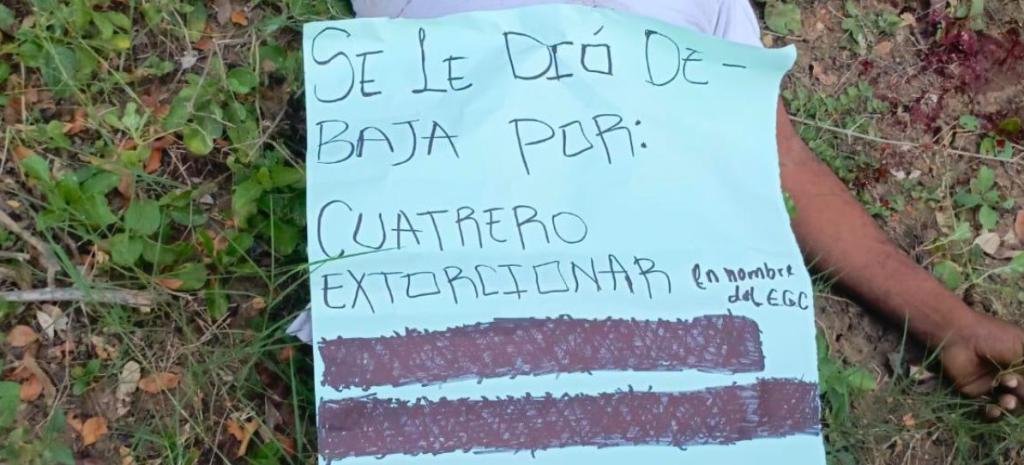 SE LE DIÓ DE-
BAJA POR:
CUATRERO
EXTORCIONAR en nombre
del EGC